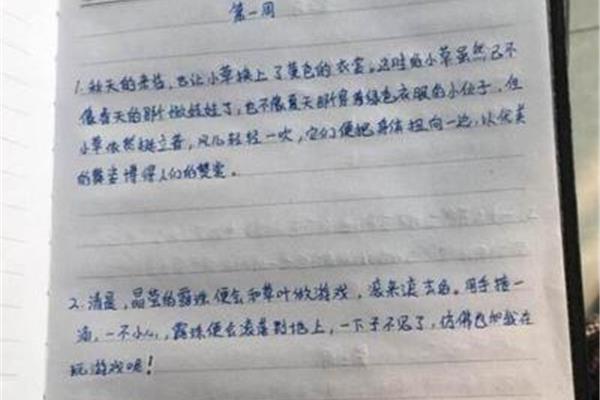 第一周
1. 秋天的来临，也让小草换上了黄色的衣裳。这时的小草虽然已不
像春天的那个嫩娃娃了，也不像夏天那个穿着绿色衣服的小伙子，但
小草依然挺立着，风儿轻轻一吹，它们便把身体扭向一边，以优美
的舞姿博得人们的赞赏。
2. 清晨，晶莹的露珠便会和草叶做游戏，滚来滚去的。用手揰一
涌，一不小心，露珠便会滚落到地上，一下子不见了，仿佛也和我在
玩游戏呢！